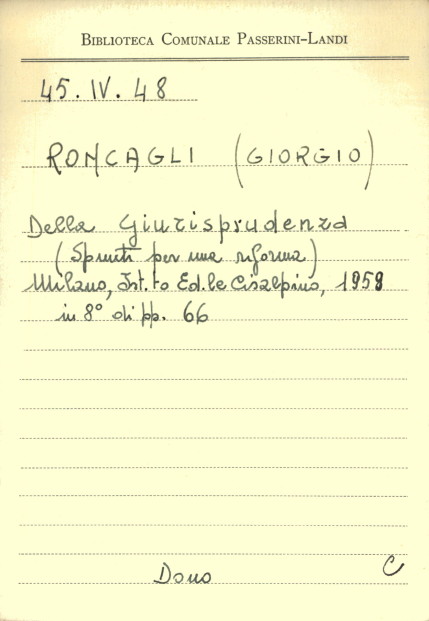 BIBLIOTECA COMUNALE PASSERINI-LANDI
45. IV. 48
RONCAGLI (GIORGIO)
Della Giurisprudenza
(Spunti per una riforma)
Milano, Ist.to Ed.le Cisalpino, 1959
in 8° di pp. 66
Dono C